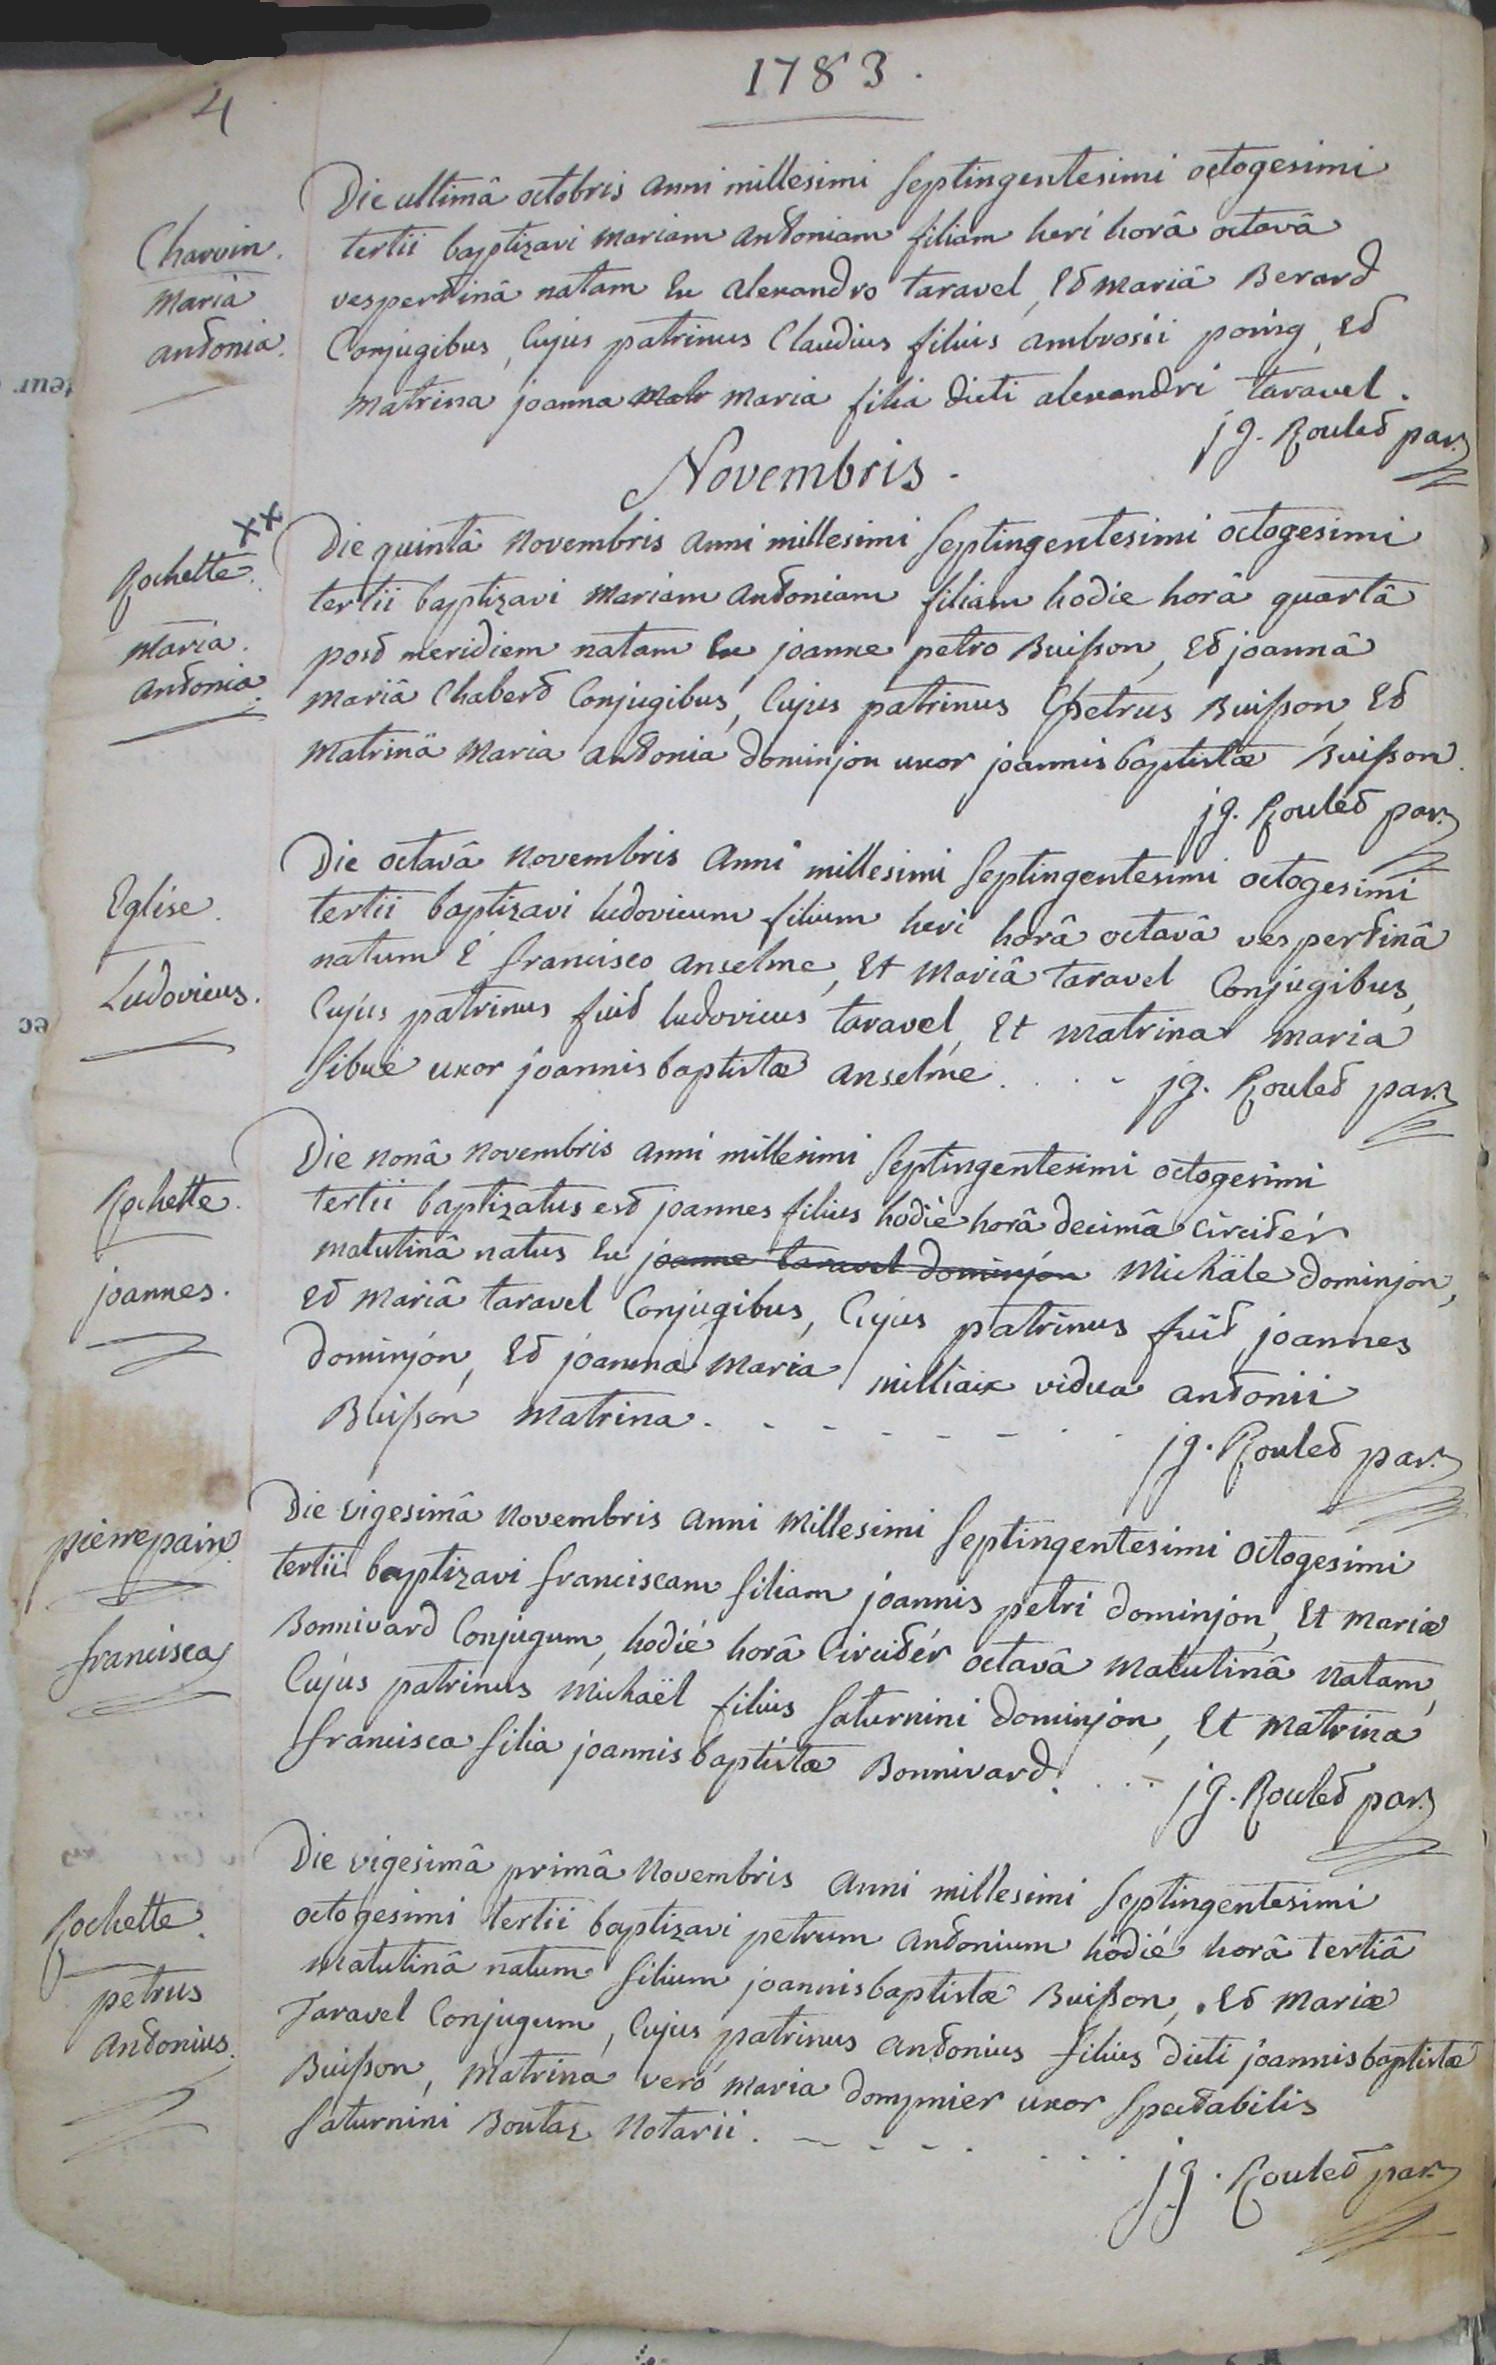 4
1783.
Charvin.
Maria
antonia.
Die ultimâ octobris anni millesimi septingentesimi octogesimi
tertii baptizavi mariam antoniam filiam heri horâ octavâ
vespertinâ natam ex alexandro taravel, et mariâ Berard
Conjugibus, Cujus patrinus Claudius filius ambrosii poing, et
matrina joanna maria filia dicti alexandri taravel.
jg. Roulet par.
Novembris.
xx
Rochette.
Maria.
antonia.
Die quintâ novembris anni millesimi septingentesimi octogesimi
tertii baptizavi mariam antoniam filiam hodie horâ quartâ
post meridiem natam ex joanne petro Buisson, et joannâ
mariâ Chabert Conjugibus, Cujus patrinus petrus Buisson, et
matrina Maria antonia dominjon uxor joannis baptistæ Buisson.
jg. Roulet par.
Eglise.
Ludovicus.
Die octavâ novembris anni millesimi septingentesimi octogesimi
tertii baptizavi ludovicum filium heri horâ octavâ vespertinâ
natum è francisco anselme, et mariâ taravel Conjugibus,
Cujus patrinus fuit ludovicus taravel, et matrina maria
sibué uxor joannis baptistæ anselme. . . . - jg. Roulet par.
Rochette.
joannes.
Die nonâ novembris anni millesimi septingentesimi octogesimi
tertii baptizatus est joannes filius hodiè horâ decimâ circitèr
matutinâ natus ex joanne taravel dominjon Michäle dominjon,
et mariâ taravel Conjugibus, Cujus patrinus fuit joannes
dominjon, et joanna maria milliaix vidua antonii
Buisson matrina. - - - - - - . .
jg. Roulet par.
pierrepain.
francisca
Die vigesimâ novembris anni millesimi septingentesimi octogesimi
tertii baptizavi franciscam filiam joannis petri dominjon, et mariæ
Bonnivard Conjugum, hodié horâ Circitér octavâ matutinâ natam,
Cujus patrinus michaël filius saturnini dominjon, et matrina
francisca filia joannis baptistæ Bonnivard. . . . - jg. Roulet par.
Rochette.
petrus
antonius.
Die vigesimâ primâ novembris anni millesimi septingentesimi
octogesimi tertii baptizavi petrum antonium hodié horâ tertiâ
matutinâ natum filium joannis baptistæ Buisson, et mariæ
Taravel Conjugum, Cujus patrinus antonius filius dicti joannis baptistæ
Buisson, matrina verò maria dompnier uxor spectabilis
saturnini Boutaz notarii. - - - - . . . .
jg. Roulet par.